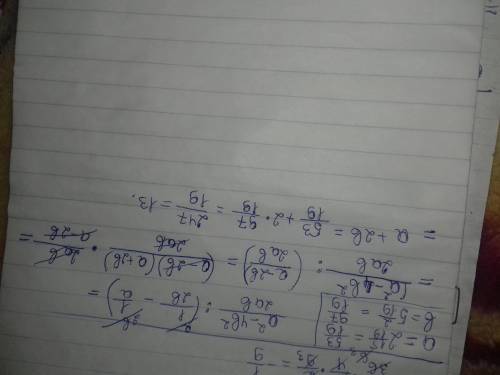 a = 2 15/19 = 53/19
b = 5 2/19 = 97/19
(a² - 4b²)/(2ab) : (1/(2b) - 1/a) =
= (a² - 4b²)/(2ab) : ((a - 2b)/(2ab)) = ((a - 2b)(a + 2b))/(2ab) · (2ab)/(a - 2b) =
= a + 2b = 53/19 + 2 · 97/19 = 247/19 = 13.